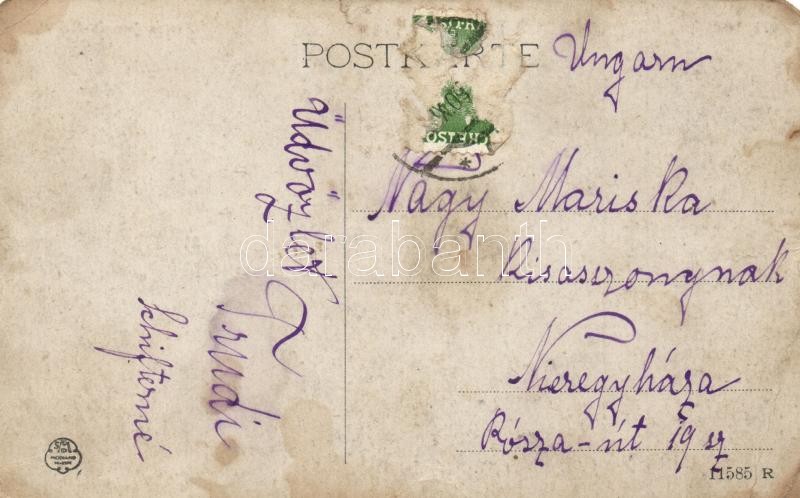 POSTKARTE
Ungarn
Üdvözlet
Trudi
Schifterné
Nagy Mariska
Kisasszonynak
Nieregyháza
Rósza-út 19 sz
11585 R
darabanth